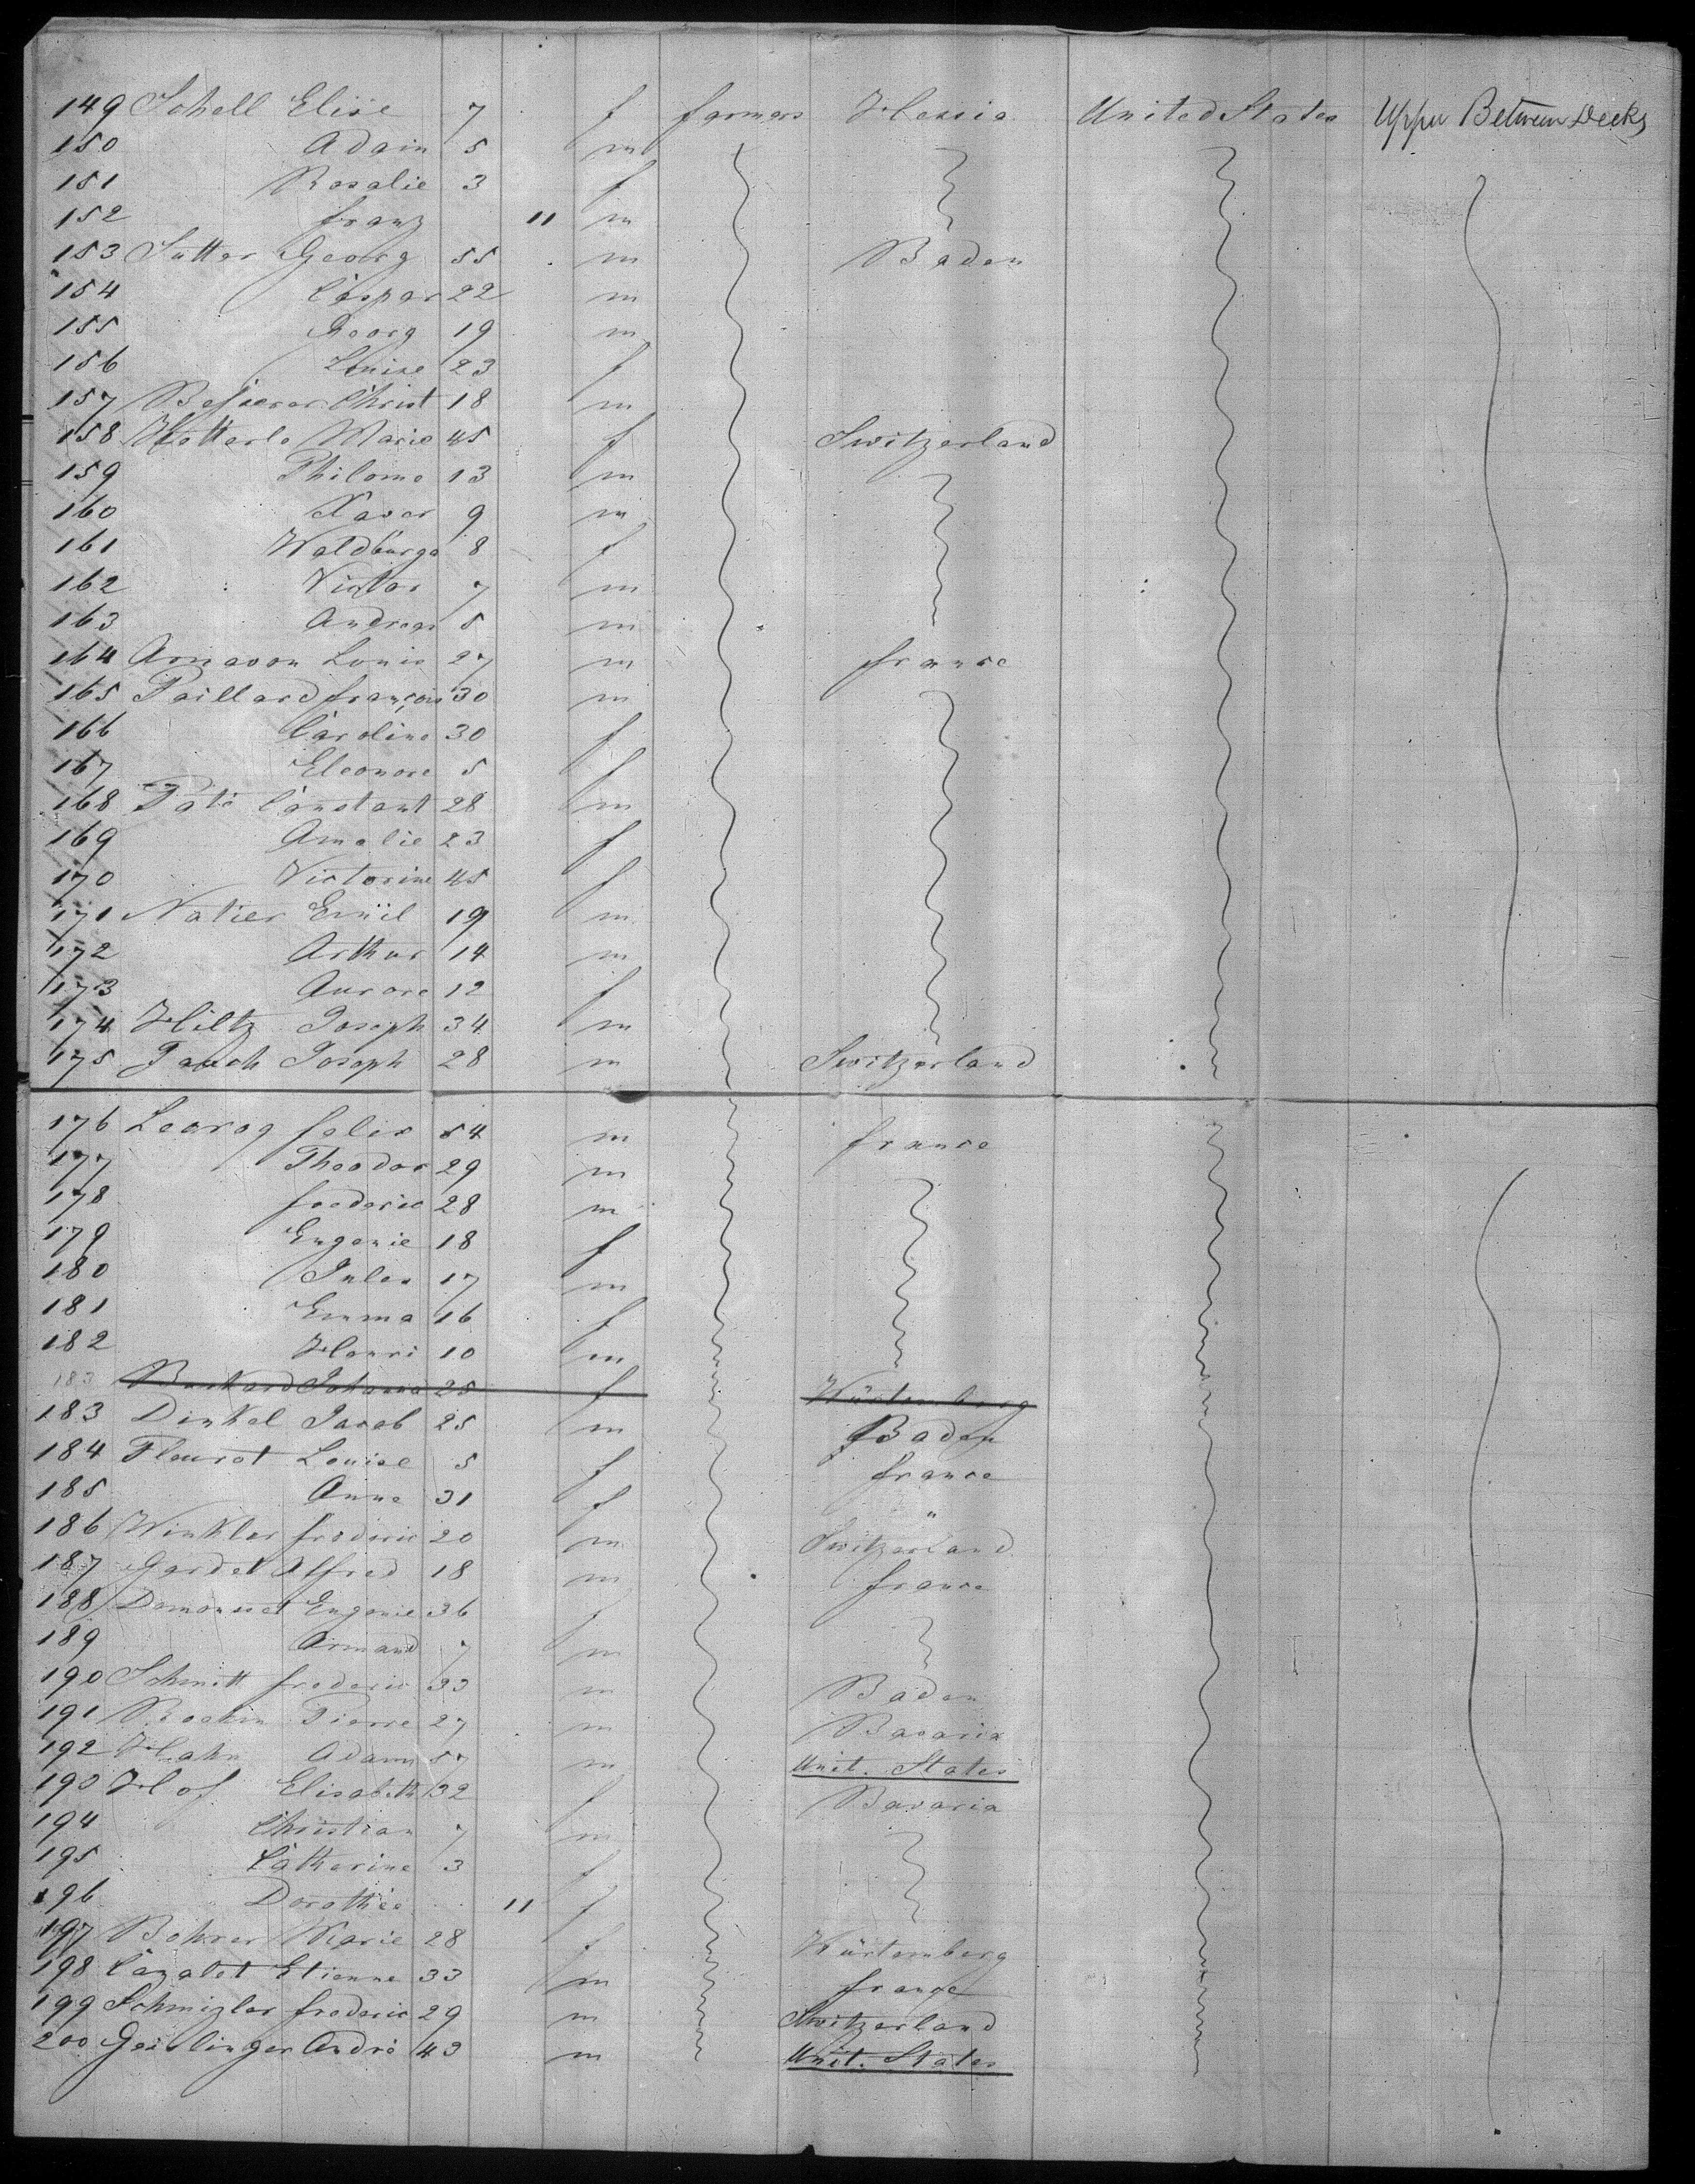 149 Schell Elise 7 f farmers Hessia United States Upper Between Decks
150 Adam 5 m
151 Rosalie 3 f
152 franz 11 m
153 Sutter Georg 55 m Baden
154 Caspar 22 m
155 Georg 19 m
156 Louise 23 f
157 Christ 18 m
158 Hetterle Marie 45 f Switzerland
159 Philome 13 m
160 Xaver 9 m
161 Waldburga 8 f
162 Victor 7 m
163 Andreas 5 m
164 Louis 27 m france
165 Paillard françois 30 m
166 Caroline 30 f
167 Eleonore 5 f
168 Paté Constant 28 m
169 Amalie 23 f
170 Victorine 45 f
171 Natier Emil 19 m
172 Arthur 14 m
173 Aurore 12 f
174 Hiltz Joseph 34 m
175 Joseph 28 m Switzerland
176 felix 54 m france
177 Theodor 29 m
178 frederic 28 m
179 Eugenie 18 f
180 Jules 17 m
181 Emma 16 f
182 Henri 10 m
183 Burkard Johanna 25 f Würtemberg
183 Dinkel Jacob 25 m Baden
184 Fleurot Louise 5 f france
185 Anne 31 f "
186 Winkler frederic 20 m Switzerland
187 Gardet Alfred 18 m france
188 Eugenie 36 f
189 Armand 7 m
190 Schmitt frederic 33 m Baden
191 Pierre 27 m Bavaria
192 Hahn Adam 57 m Unit. States
190 Hof Elisabeth 32 f Bavaria
194 Christian 7 m
195 Catherine 3 f
196 Dorothée 11 f
197 Bohrer Marie 28 f Würtemberg
198 Cazalet Etienne 33 m france
199 frederic 29 m Switzerland
200 Geislinger André 43 m Unit. States